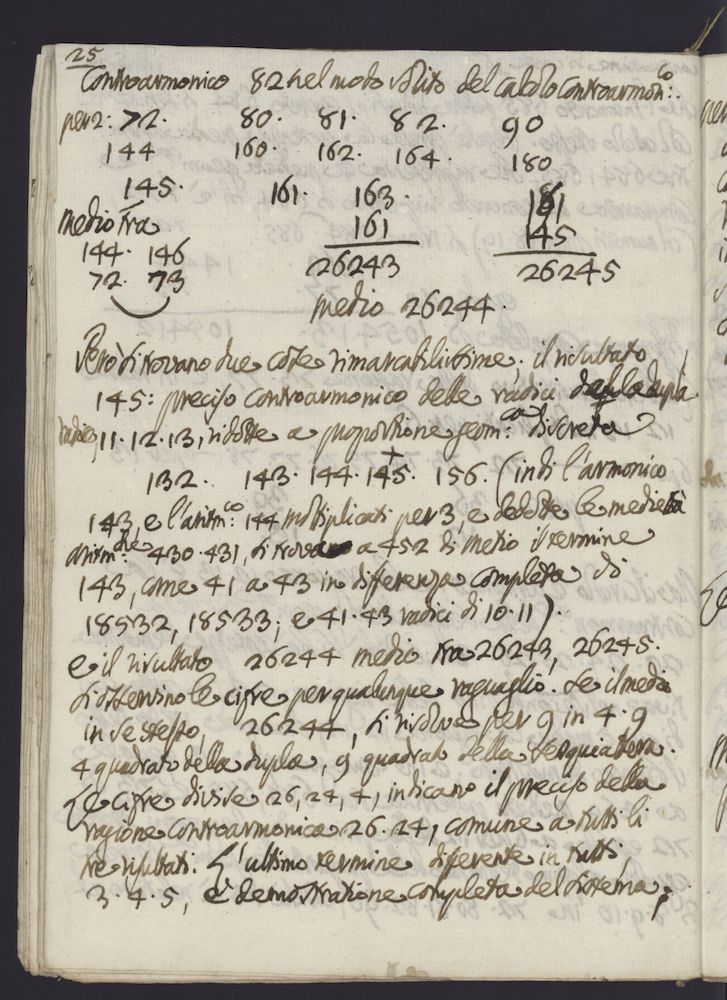 25
Controarmonico 82 nel modo solito del calcolo Controarmon:co.
per 2: 72. 80. 81. 82. 90
144 160. 162. 164. 180
145. 161. 163. 181
medio tra 161 145
144. 146 26243 26245
72. 73
medio 26244.
Però si trovano due cose rimarcabilissime; il risultato
145: preciso Controarmonico delle radici dupla
radici, 11. 12. 13, ridotte a proporzione geom:ca discreta
132. 143. 144. 145. 156. (indi l'armonico
143, e l'aritm:co 144 moltiplicati per 3, e dedotte le medietà
aritm:che 430. 431, si trova a 452 di mezzo il termine
143, come 41 a 43 in differenza completa di
18532, 18533; e 41. 43 radici di 10. 11).
e il risultato 26244 medio tra 26243, 26245.
si osservino le cifre per qualunque raguaglio. Se il medio
in se stesso, 26244, si risolve per 9 in 4. 9
4 quadrato della dupla, 9 quadrato della sesquialtera.
Le cifre divise 26, 24, 4, indicano il preciso della
ragione controarmonica 26. 24, comune a tutti li
tre risultati. L'ultimo termine differente in tutti,
3. 4. 5, è demostratione completa del sistema;